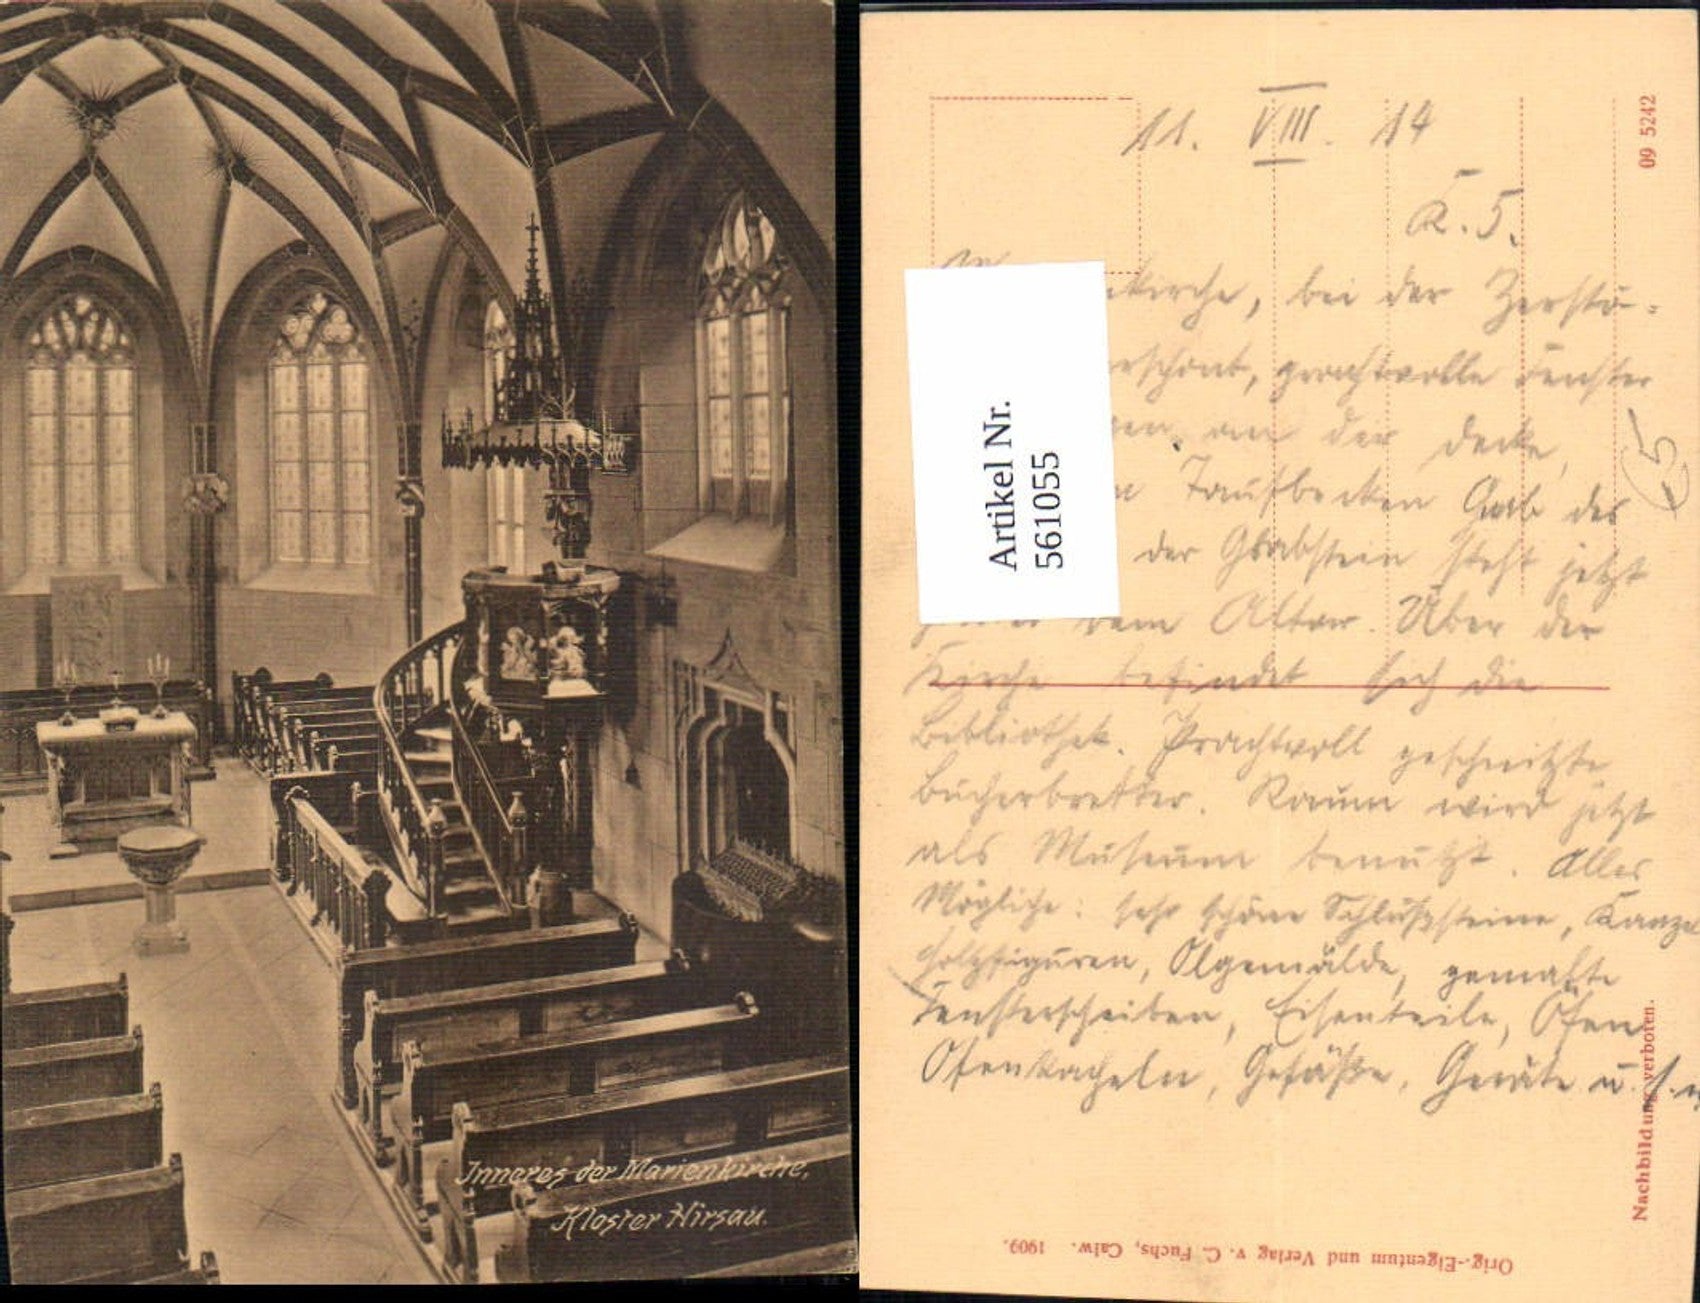 Inneres der Marienkirche,
Kloster Hirsau.
11. VIII. 14
K. 5.
kirche, bei der Zerstö-
rschont, prachtvolle Fenster
gen an der Decke,
Taufbecken Grab des
der Grabstein steht jetzt
dem Altar. Über der
Kirche befindet sich die
Bibliothek. Prachtvoll geschnitzte
Bücherbretter. Raum wird jetzt
als Museum benützt. Alles
Mögliche: sehr schöne Schlußsteine, Kanzel
Holzfiguren, Ölgemälde, gemalte
Fensterscheiben, Eisenteile, Öfen
Ofenkacheln, Gefäße, Geräte u. s. w.
Artikel Nr.
561055
09 5242
Nachbildung verboten.
Orig.-Eigentum und Verlag v. C. Fuchs, Calw. 1909.